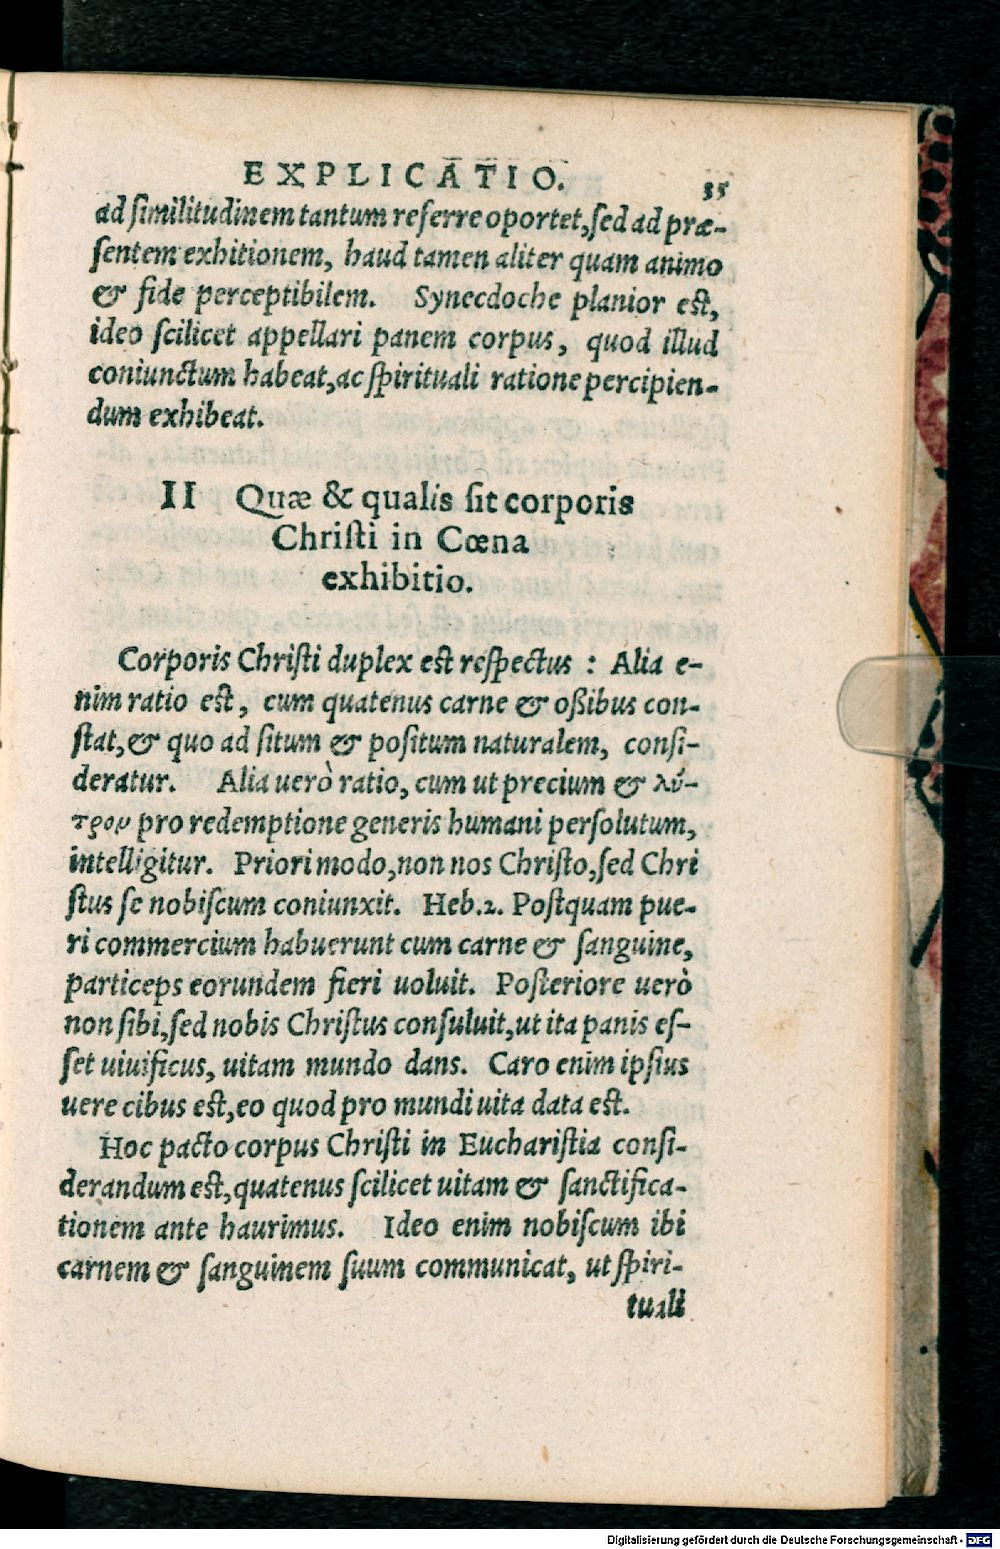 EXPLICATIO. 35
ad similitudinem tantum referre oportet, sed ad præ-
sentem exhitionem, haud tamen aliter quam animo
& fide perceptibilem. Synecdoche planior est,
ideo scilicet appellari panem corpus, quod illud
coniunctum habeat, ac spirituali ratione percipien-
dum exhibeat.
II Quæ & qualis sit corporis
Christi in Cœna
exhibitio.
Corporis Christi duplex est respectus : Alia e-
nim ratio est, cum quatenus carne & oßibus con-
stat, & quo ad situm & positum naturalem, consi-
deratur. Alia uerò ratio, cum ut precium & λύ-
τρον pro redemptione generis humani persolutum,
intelligitur. Priori modo, non nos Christo, sed Chri
stus se nobiscum coniunxit. Heb.2. Postquam pue-
ri commercium habuerunt cum carne & sanguine,
particeps eorundem fieri uoluit. Posteriore uerò
non sibi, sed nobis Christus consuluit, ut ita panis es-
set uiuificus, uitam mundo dans. Caro enim ipsius
uere cibus est, eo quod pro mundi uita data est.
Hoc pacto corpus Christi in Eucharistia consi-
derandum est, quatenus scilicet uitam & sanctifica-
tionem ante haurimus. Ideo enim nobiscum ibi
carnem & sanguinem suum communicat, ut spiri-
tuali
Digitalisierung gefördert durch die Deutsche Forschungsgemeinschaft - DFG